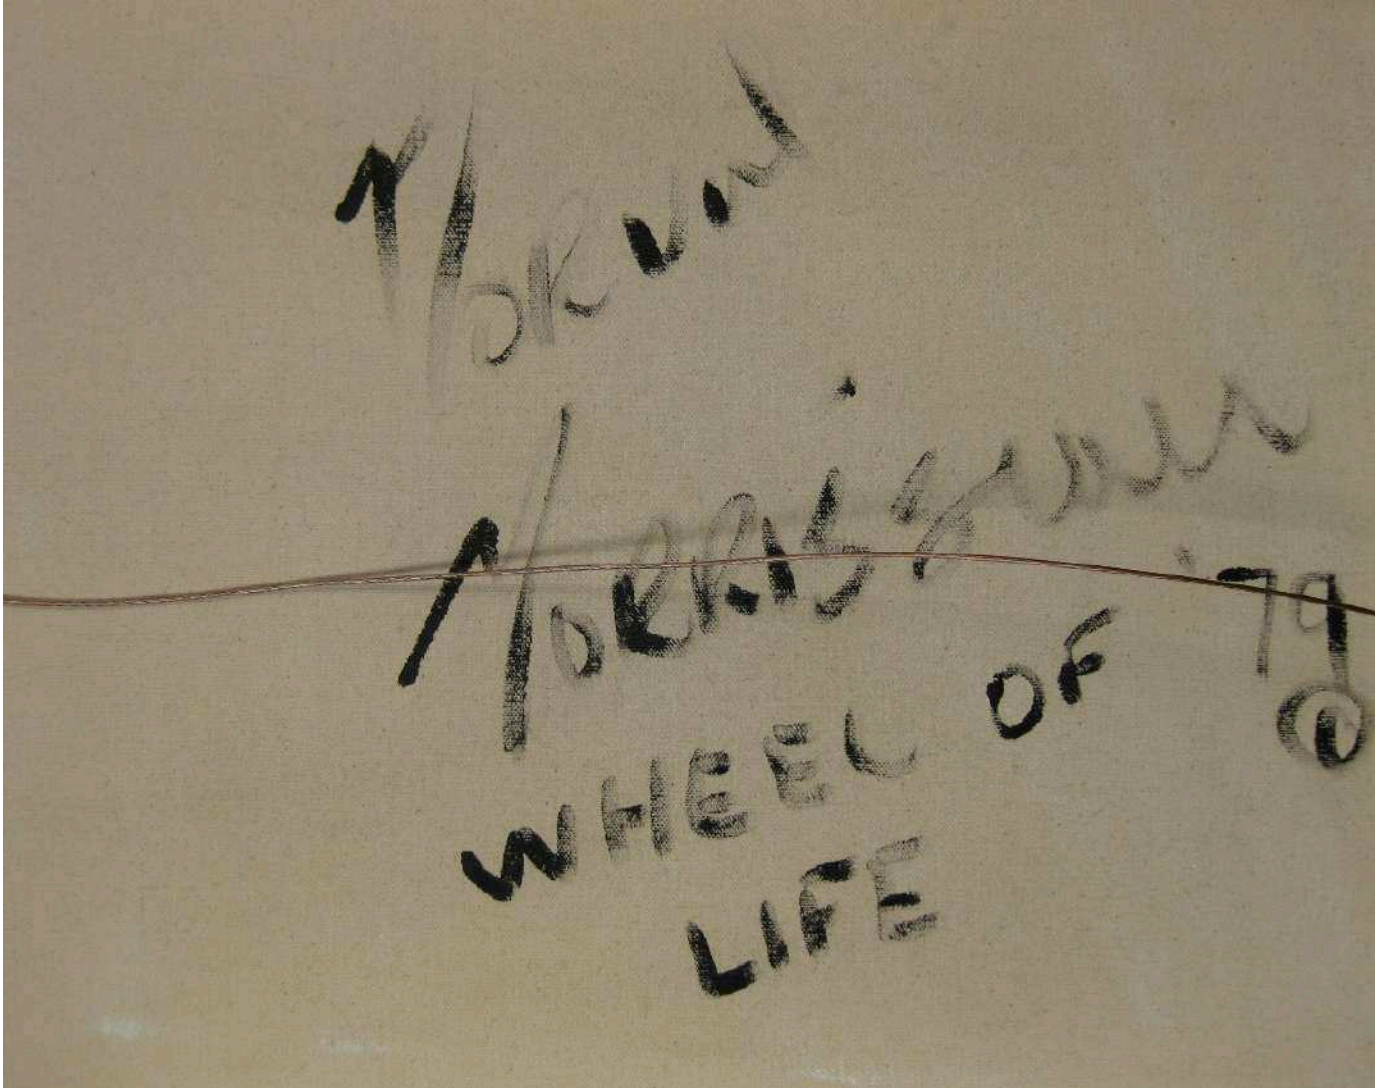 Norval
Morrisseau '79
WHEEL OF
LIFE